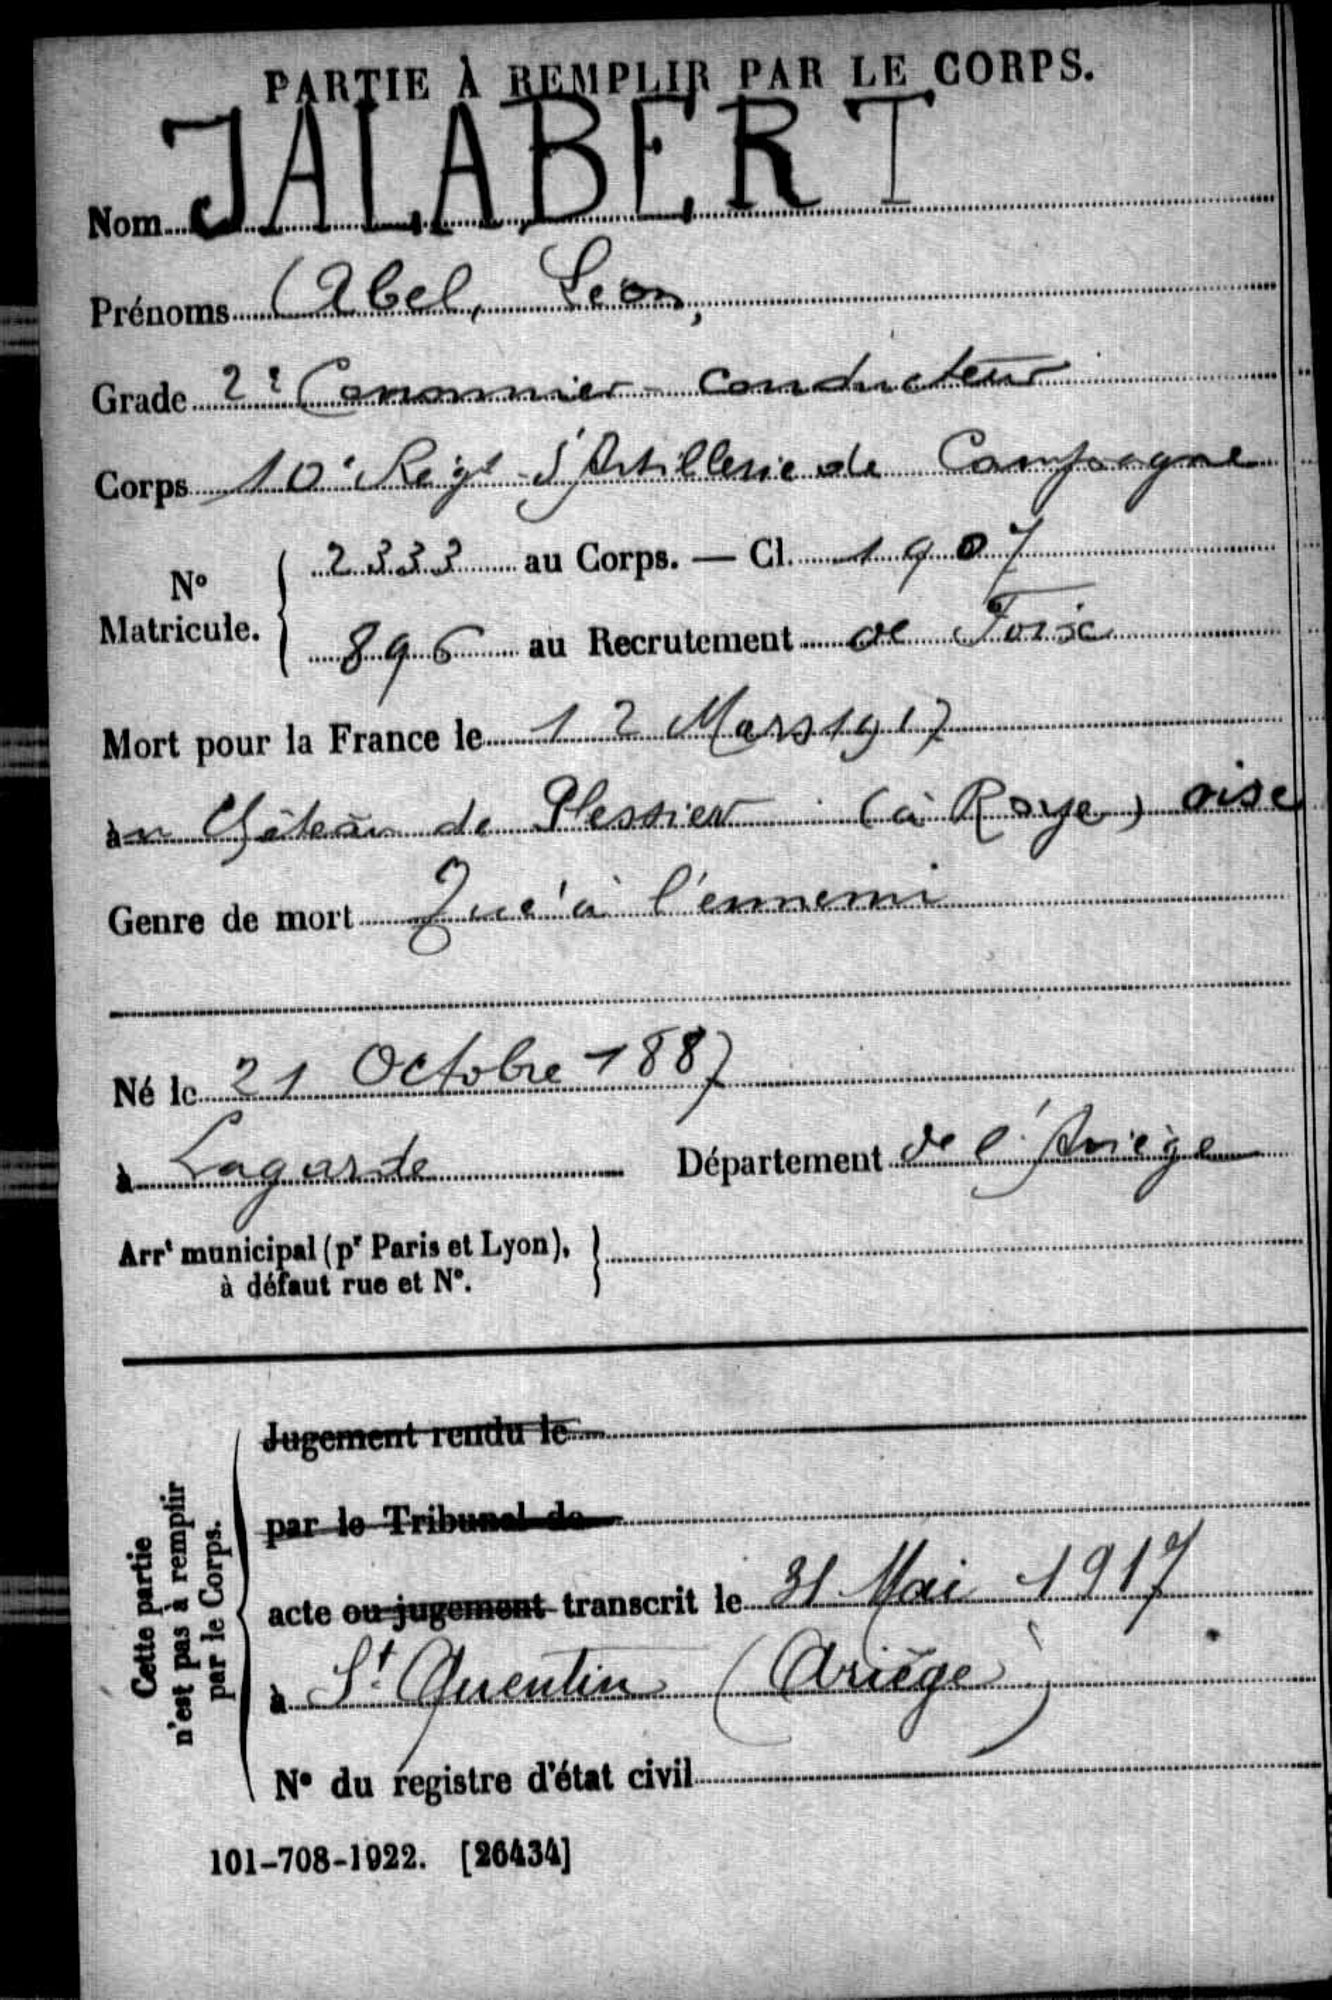 PARTIE À REMPLIR PAR LE CORPS.
Nom JALABERT
Prénoms Abel, Léon,
Grade 2e Canonnier conducteur
Corps 10e Régt d'Artillerie de Campagne
N° Matricule. 2333 au Corps. — Cl. 1907
896 au Recrutement de Foix
Mort pour la France le 12 Mars 1917
au Château de Plessier (à Roye) oise
Genre de mort Tué à l'ennemi
Né le 21 Octobre 1887
à Lagarde Département de l'Ariège
Arrt municipal (pr Paris et Lyon),
à défaut rue et N°.
Cette partie
n'est pas à remplir
par le Corps.
Jugement rendu le
par le Tribunal de
acte ou jugement transcrit le 31 Mai 1917
à St Quentin (Ariège)
N° du registre d'état civil
101-708-1922. [26434]